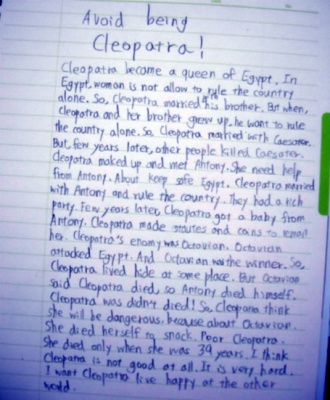 Avoid being
Cleopatra!
Cleopatra become a queen of Egypt. In
Egypt, woman is not allow to rule the country
alone. So, Cleopatra married his brother. But when,
Cleopatra and her brother grew up, he want to rule
the country alone. So Cleopatra married with Caesater.
But, few years later, other people killed Caesater.
Cleopatra maked up and met Antony. She need help
from Antony. About keep safe Egypt. Cleopatra married
with Antony and rule the country. They had a rich
party. Few years later, Cleopatra got a baby from
Antony. Cleopatra made statues and coins to
her. Cleopatra's enemy was Octavian. Octavian
attacked Egypt. And Octavian was the winner. So,
Cleopatra lived hide at some place. But Octavian
said Cleopatra died, so Antony died himself.
Cleopatra was didn't died! So, Cleopatra think
she will be dangerous, because about Octavian.
She died herself to snack. Poor Cleopatra.
She died only when she was 39 years. I think
Cleopatra is not good at all. It is very hard.
I want Cleopatra live happy at the other
world.